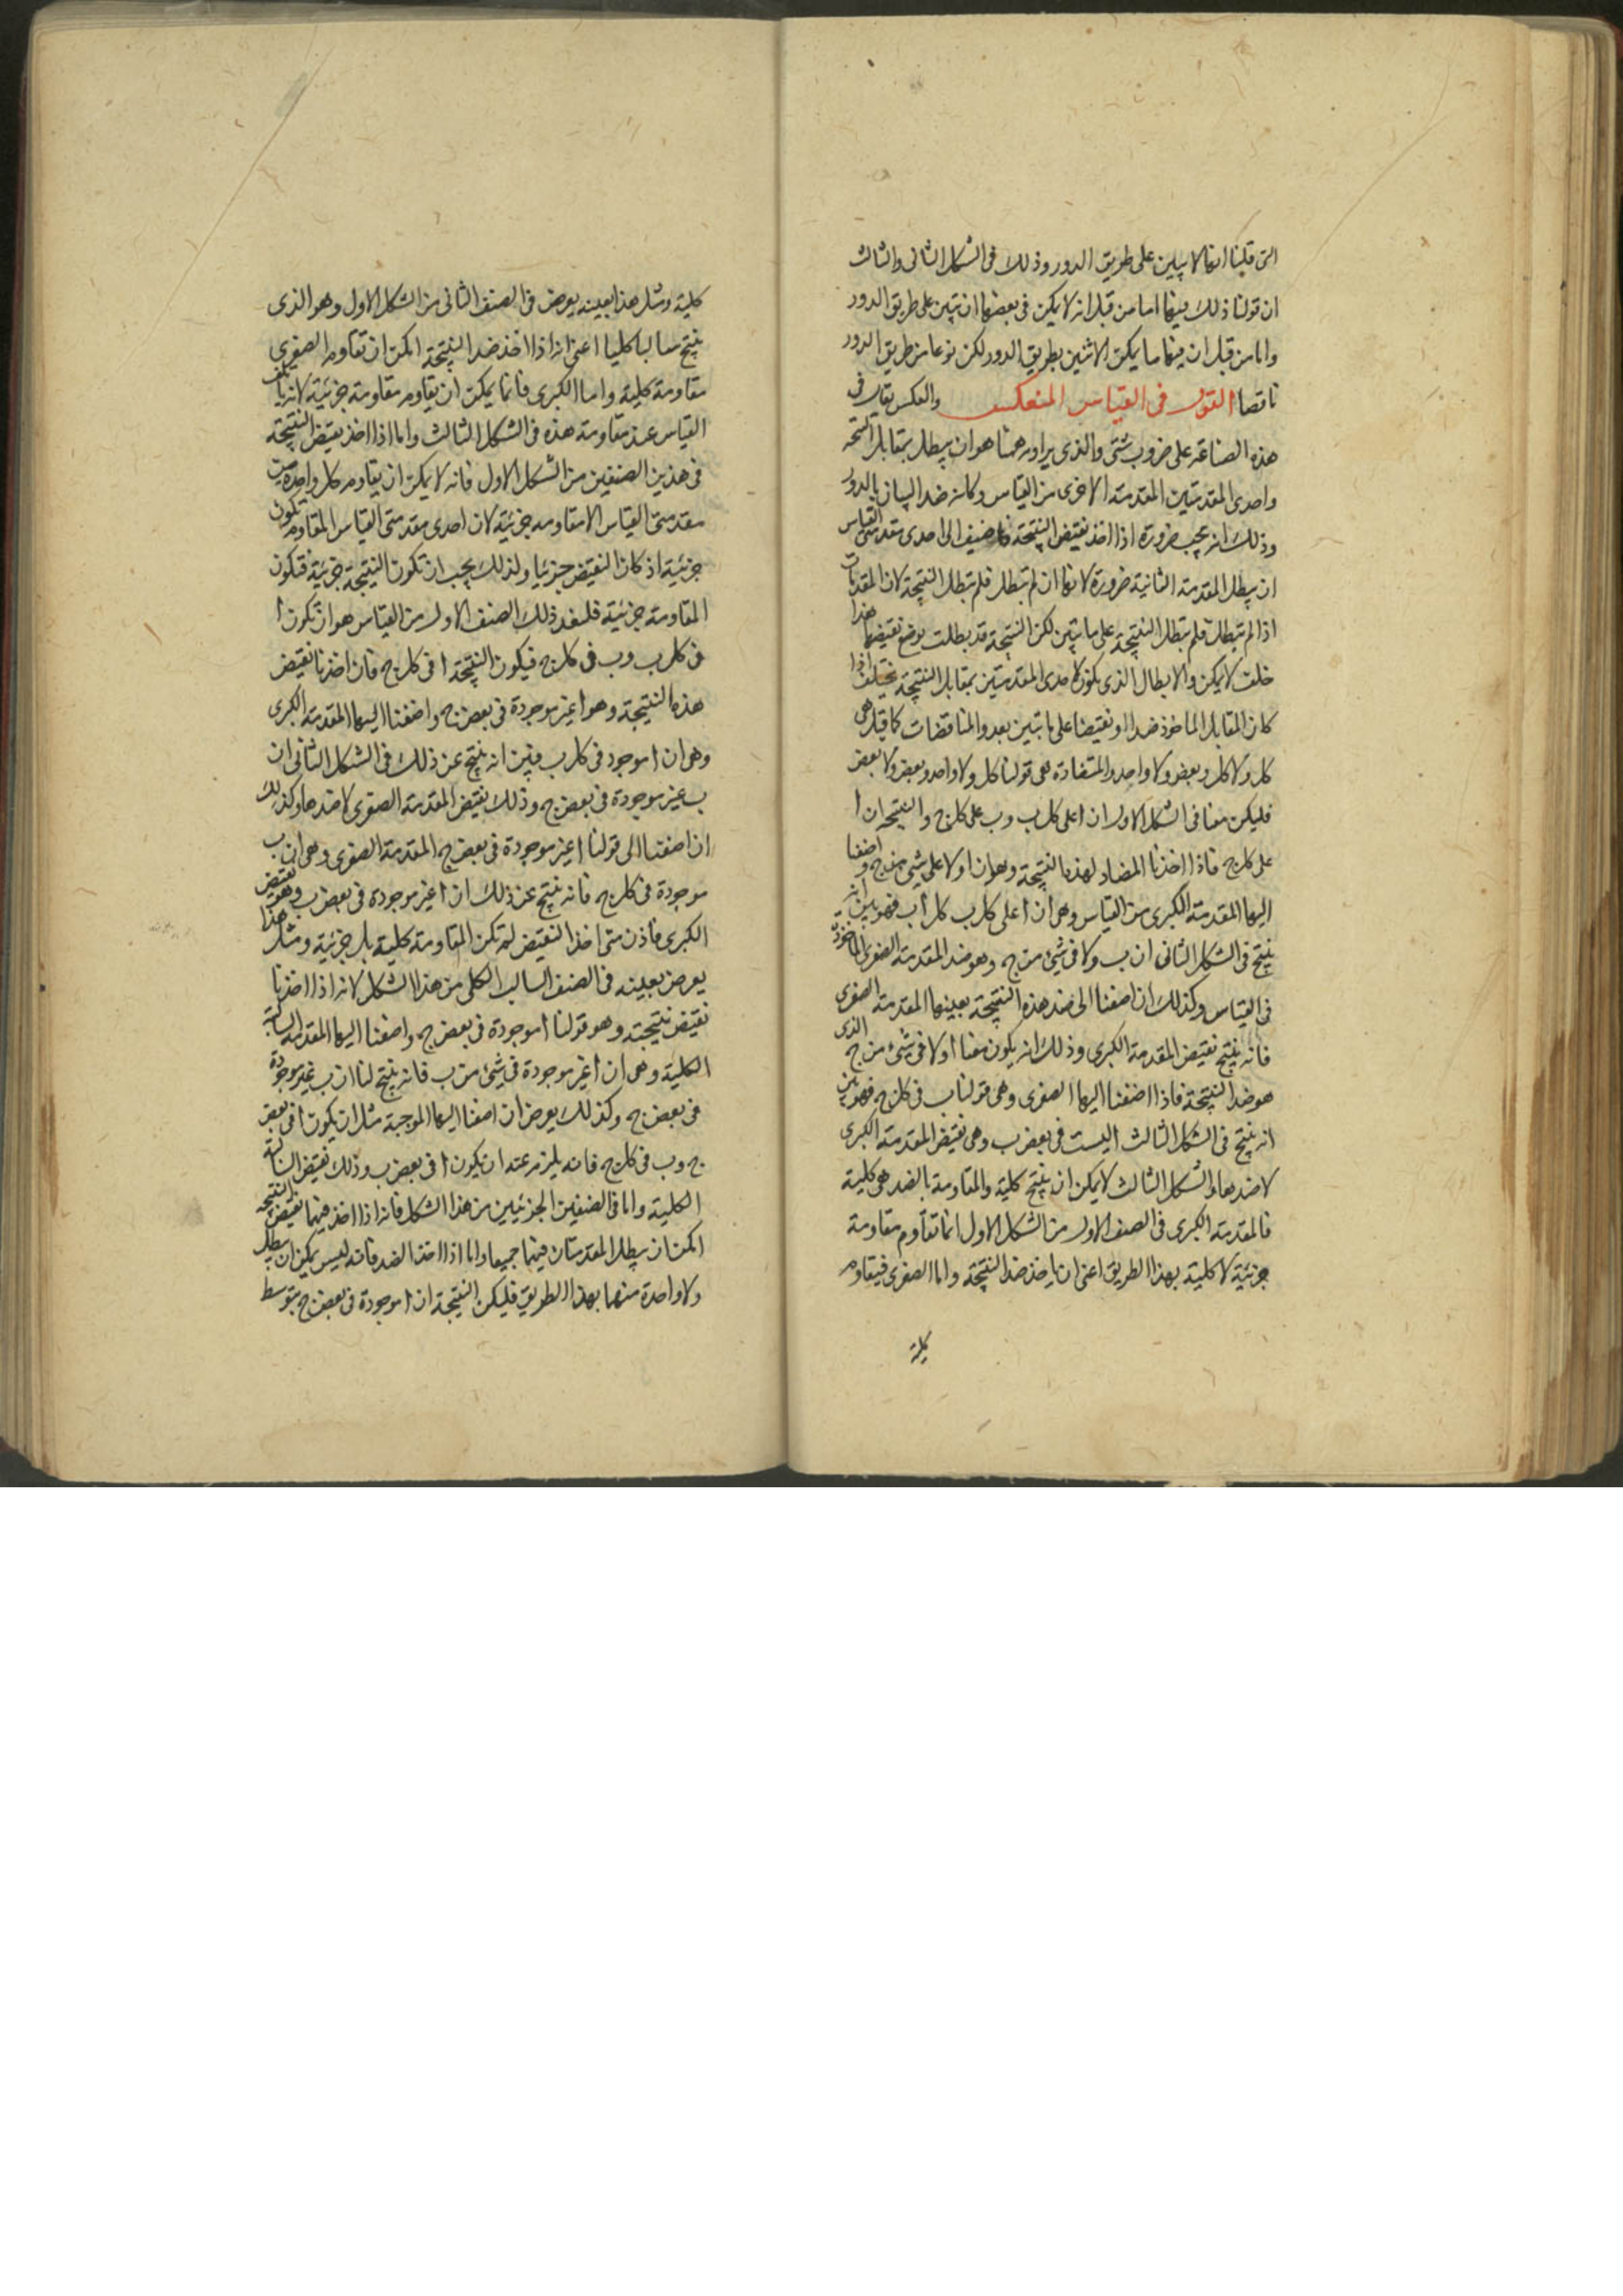 التى قلنا انها لا تبين على طريق الدور وذلك فى الشكل الثانى والثالث
ان قولنا ذلك فيها اما من قبل انه لا يمكن فى بعضها ان تبين على طريق الدور
واما من قبل ان منها ما يمكن الا تبين بطريق الدور لكن نوعا من طريق الدور
ناقصا القول فى القياس المنعكس والعكس يقال فى
هذه الصناعة على ضروب شتى والذى يراد به ههنا هو ان يبطل بمقابل النتيجة
واحدى المقدمتين المقدمة الاخرى من القياس وكانه ضد البيان بالدور
وذلك انه يجب ضرورة اذا اخذ نقيض النتيجة فاضيف الى احدى مقدمتى القياس
ان يبطل المقدمة الثانية ضرورة لانها ان لم تبطل فلم تبطل النتيجة لان المقدمات
اذا لم تبطل فلم تبطل النتيجة على ما تبين لكن النتيجة قد بطلت بوضع نقيضها هذا
خلف لا يمكن والابطال الذى يكون لاحدى المقدمتين بمقابل النتيجة يختلف اذا
كان المقابل الماخوذ ضدا او نقيضا على ما تبين بعد والمناقضات كما قيل هى
كل ولا كل وبعض ولا واحد والمتضادة هى قولنا كل ولا واحد وبعض ولا بعض
فليكن معنا فى الشكل الاول ان ا على كل ب وب على كل ج والنتيجة ان ا
على كل ج فاذا اخذنا المضاد لهذه النتيجة وهو ان ا ولا على شىء من ج واضفنا
اليها المقدمة الكبرى من القياس وهى ان ا على كل ب كل ا ب فهو بين انه
ينتج فى الشكل الثانى ان ب ولا فى شىء من ج وهو ضد المقدمة الصغرى الماخوذة
فى القياس وكذلك ان اضفنا الى ضد هذه النتيجة بعينها المقدمة الصغرى
فانه ينتج نقيض المقدمة الكبرى وذلك انه يكون معنا ا ولا فى شىء من ج الذى
هو ضد النتيجة فاذا اضفنا اليها الصغرى وهى قولنا ب فى كل ج فهو بين
انه ينتج فى الشكل الثالث ا ليست فى بعض ب وهى نقيض المقدمة الكبرى
لا ضدها والشكل الثالث لا يمكن ان ينتج كلية والمقاومة بالضد هى كلية
فالمقدمة الكبرى فى الصنف الاول من الشكل الاول انما تقاوم مقاومة
جزئية لا كلية بهذا الطريق اعنى ان ياخذ ضد النتيجة واما الصغرى فيقاوم
كلية
كلية ومثل هذا بعينه يعرض فى الصنف الثانى من الشكل الاول وهو الذى
ينتج سالبا كليا اعنى انه اذا اخذ ضد النتيجة امكن ان تقاوم الصغرى
مقاومة كلية واما الكبرى فانما يمكن ان يقاوم مقاومة جزئية لانه ياتلف
القياس عند مقاومة هذه فى الشكل الثالث واما اذا اخذ نقيض النتيجة
فى هذين الصنفين من الشكل الاول فانه لا يمكن ان يقاوم كل واحدة من
مقدمتى القياس الا مقاومة جزئية لان احدى مقدمتى القياس المقاوم تكون
جزئية اذ كان النقيض جزئيا ولذلك يجب ان تكون النتيجة جزئية فتكون
المقاومة جزئية فلنعد ذلك الصنف الاول من القياس هو ان تكون ا
فى كل ب وب فى كل ج فيكون النتيجة ا فى كل ج فان اخذنا نقيض
هذه النتيجة وهو ا غير موجودة فى بعض ج واضفنا اليها المقدمة الكبرى
وهى ان ا موجود فى كل ب فبين انه ينتج عن ذلك فى الشكل الثانى ان
ب غير موجودة فى بعض ج وذلك نقيض المقدمة الصغرى لا ضدها وكذلك
ان اضفنا الى قولنا ا غير موجودة فى بعض ج المقدمة الصغرى وهى ان ب
موجودة فى كل ج فانه ينتج عن ذلك ان ا غير موجودة فى بعض ب وهو نقيض
الكبرى فاذن متى اخذ النقيض لم تكن المقاومة كلية بل جزئية ومثل هذا
يعرض بعينه فى الصنف السالب الكلى من هذا الشكل لانه اذا اخذنا
نقيض نتيجته وهو قولنا ا موجودة فى بعض ج واضفنا اليها المقدمة السالبة
الكلية وهى ان ا غير موجودة فى شىء من ب فانه ينتج لنا ان ب غير موجودة
فى بعض ج وكذلك يعرض ان اضفنا اليها الموجبة مثل ان يكون ا فى بعض
ج وب فى كل ج فانه يلزم عنه ان يكون ا فى بعض ب وذلك نقيض السالبة
الكلية واما فى الصنفين الجزئيين من هذا الشكل فانه اذا اخذ فيهما نقيض النتيجة
امكن ان يبطل المقدمتان فيهما جميعا واما اذا اخذ الضد فانه ليس يمكن ان يبطل
ولا واحدة منهما بهذا الطريق فليكن النتيجة ان ا موجودة فى بعض ج بتوسط